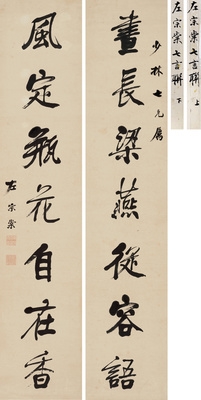 晝長梁燕從容語
少林七兄屬
風定瓶花自在香
左宗棠
左宗棠七言聯 上
左宗棠七言聯 下